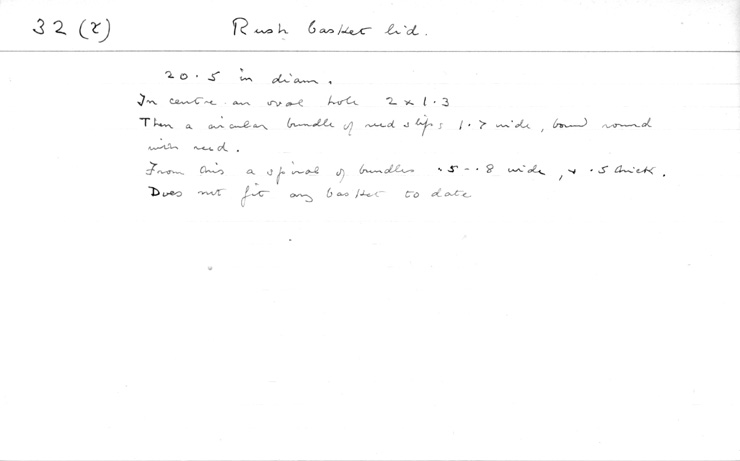 32 (r) Rush basket lid.
20.5 in diam.
In centre an oval hole 2 x 1.3
Then a circular bundle of reed slips 1.7 wide, bound round
with reed.
From this a spiral of bundles .5-.8 wide, + .5 thick.
Does not fit any basket to date